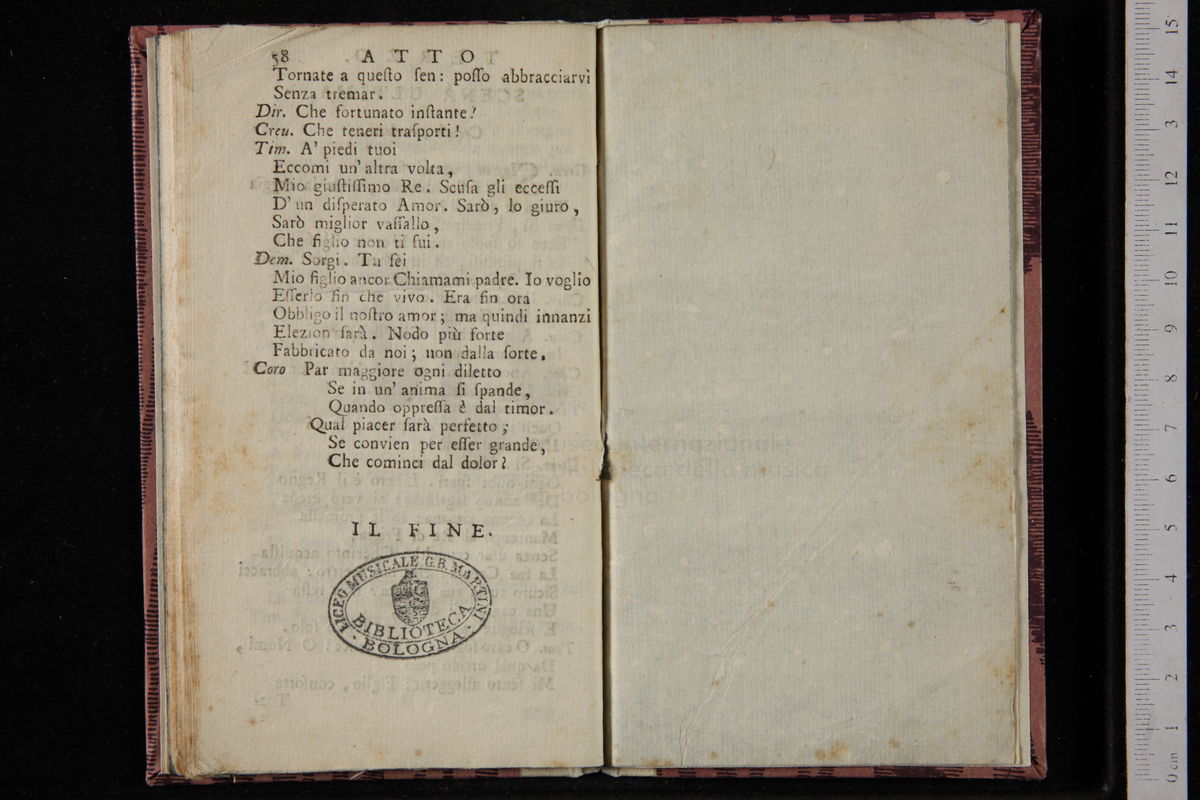 58 ATTO
Tornate a queſto ſen: poſſo abbracciarvi
Senza tremar.
Dir. Che fortunato inſtante!
Creu. Che teneri traſporti!
Tim. A' piedi tuoi
Eccomi un' altra volta,
Mio giuſtiſſimo Re. Scuſa gli ecceſſi
D' un diſperato Amor. Sarò, lo giuro,
Sarò miglior vaſſallo,
Che figlio non ti fui.
Dem. Sorgi. Tu ſei
Mio figlio ancor Chiamami padre. Io voglio
Eſſerlo fin che vivo. Era fin ora
Obbligo il noſtro amor; ma quindi innanzi
Elezion ſarà. Nodo più forte
Fabbricato da noi; non dalla ſorte.
Coro Par maggiore ogni diletto
Se in un' anima ſi ſpande,
Quando oppreſſa è dal timor.
Qual piacer ſarà perfetto;
Se convien per eſſer grande,
Che cominci dal dolor?
IL FINE.
LICEO MUSICALE G.B. MARTINI
BIBLIOTECA
· BOLOGNA ·
Museo internazionale
e biblioteca della musica
di bologna
0 cm 1 2 3 4 5 6 7 8 9 10 11 12 3 14 15